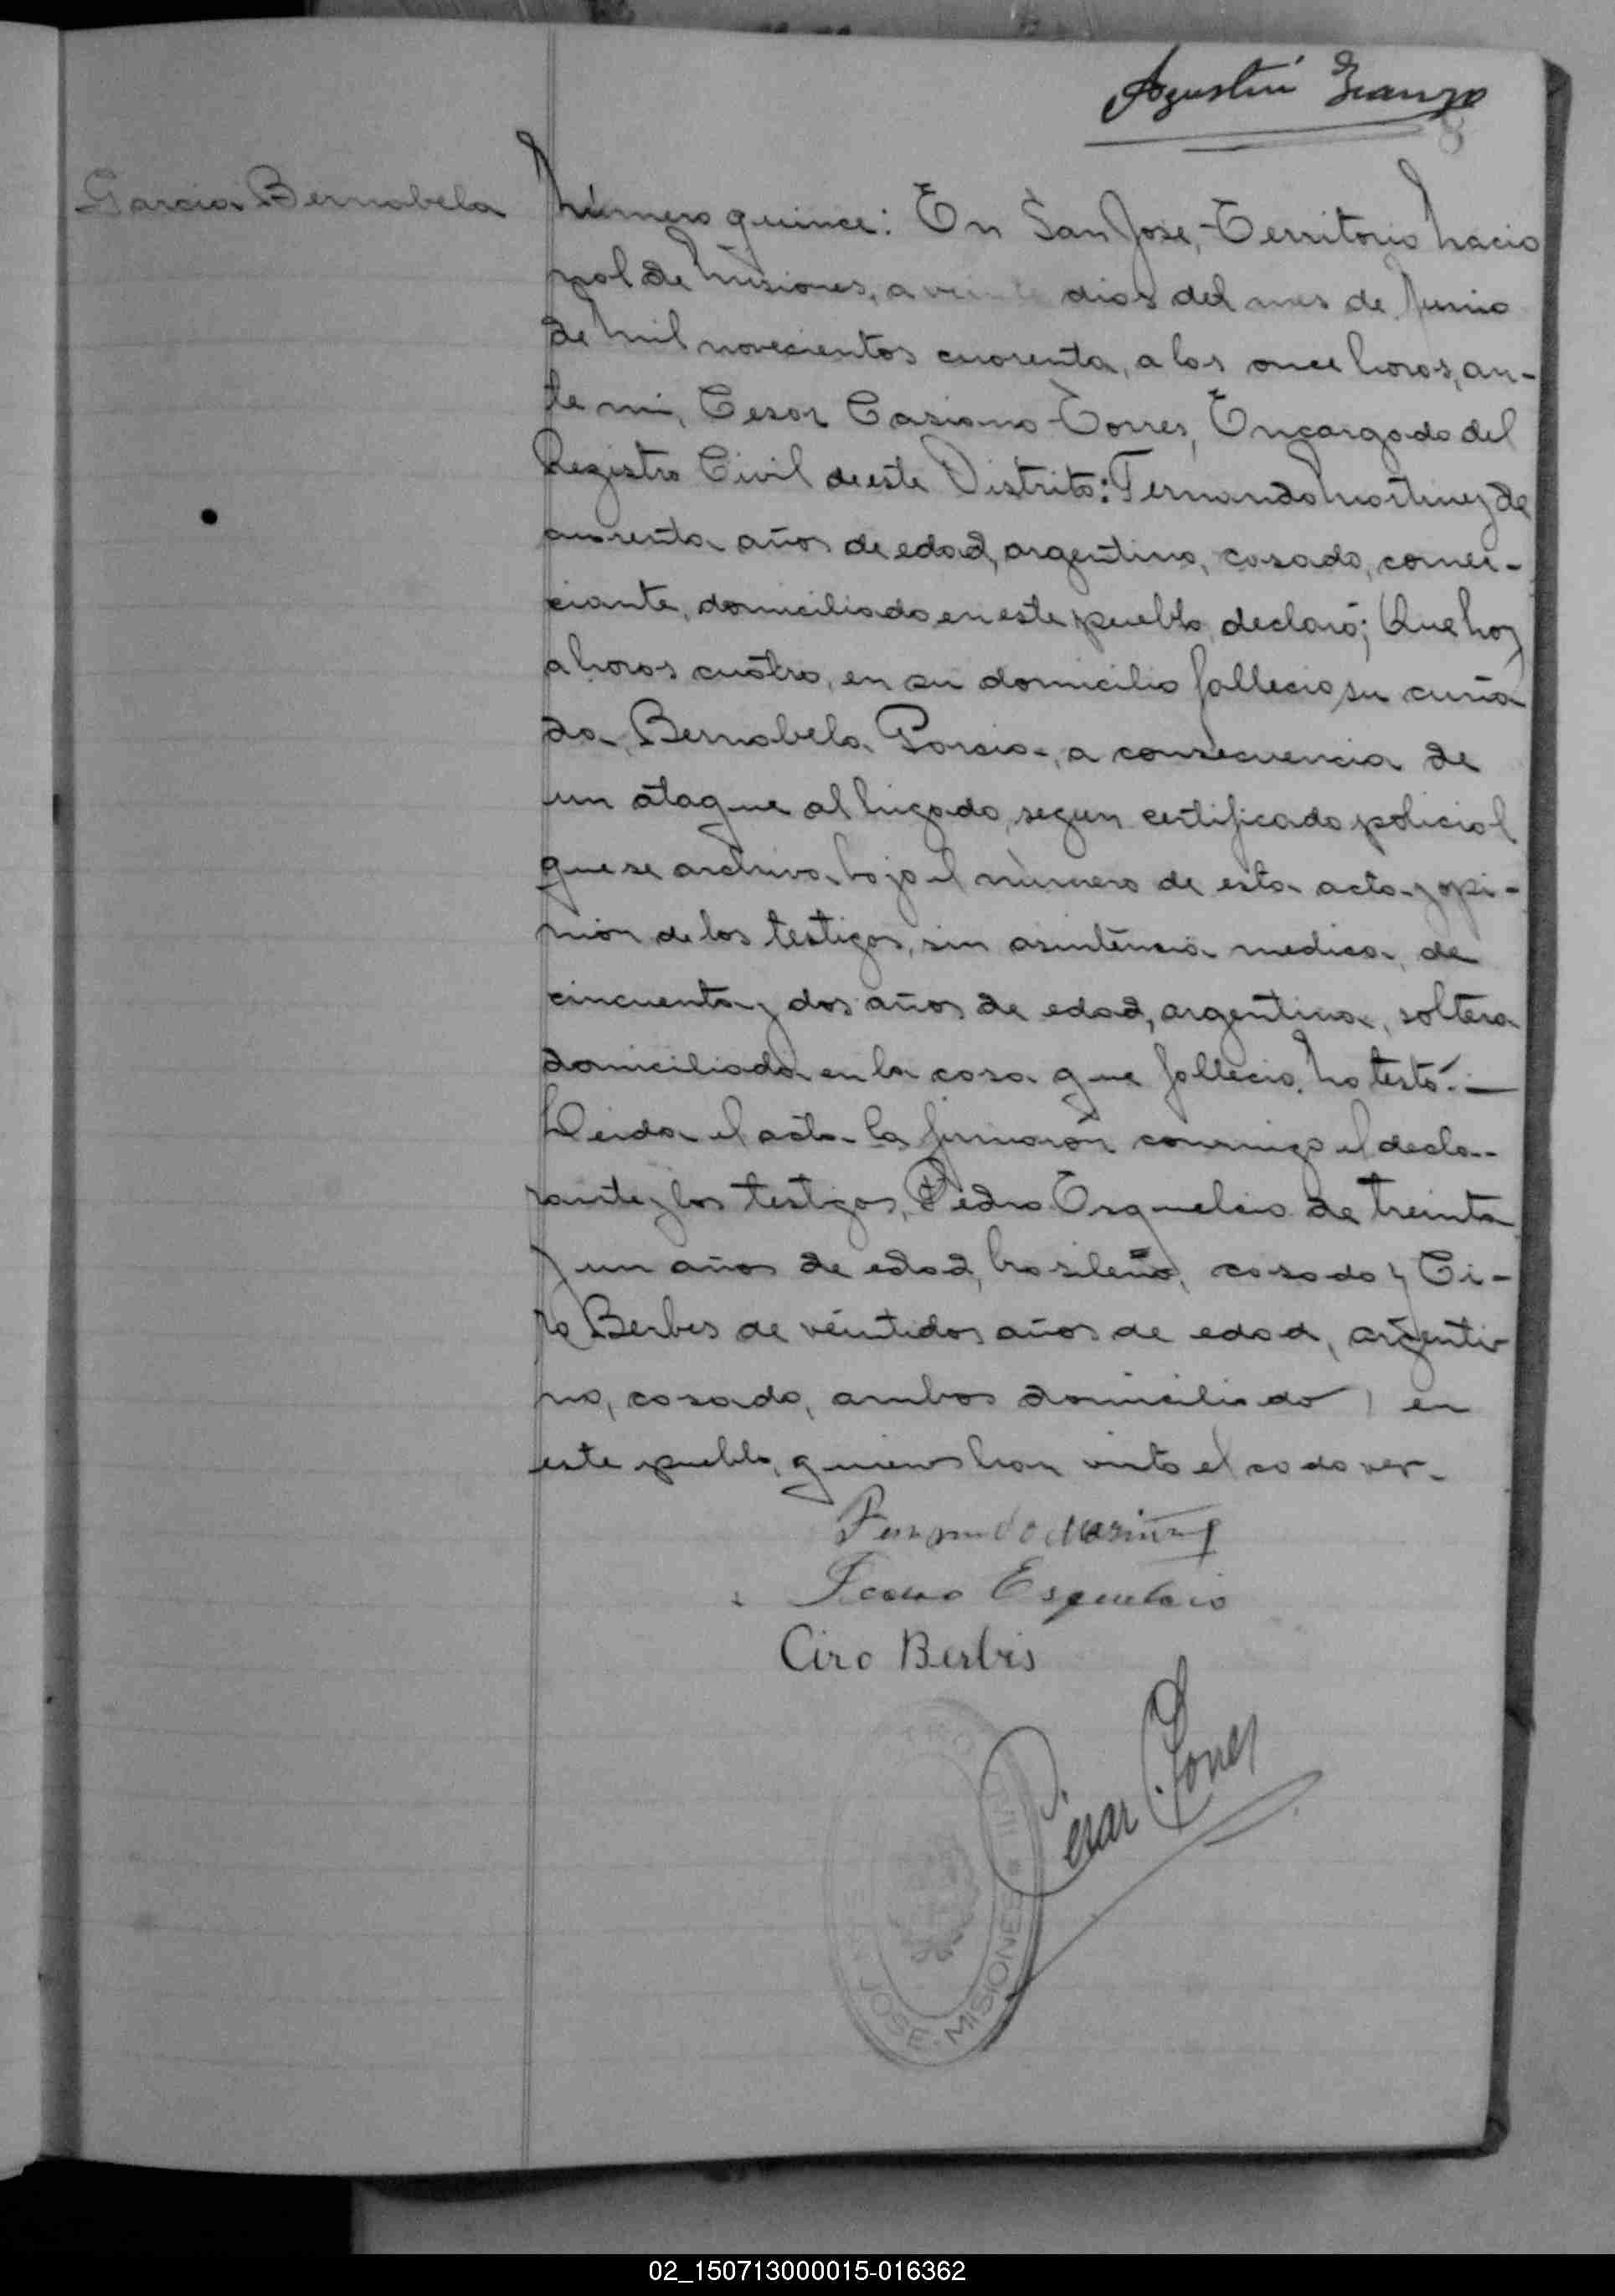 Agustín
8
Garcia Bernabela
Número quince: En San José, Territorio Nacio
nal de Misiones, a veinte dias del mes de Junio
de Mil novecientos cuarenta, a las once horas, an-
te mi, Cesar Casiano Torres, Encargado del
Registro Civil de este Distrito: Fernando Martinez de
cuarenta años de edad, argentino, casado, comer-
ciante, domiciliado en este pueblo, declaró; Que hoy
a horas cuatro, en su domicilio fallecio su cuña
da, Bernabela Garcia, a consecuencia de
un ataque al higado, segun certificado policial
que se archiva bajo el número de esta acta y opi-
nión de los testigos, sin asistencia medica, de
cincuenta y dos años de edad, argentina, soltera
domiciliada en la casa que fallecio. No testó.—
Leida el acta la firmaron conmigo el decla-
rante y los testigos, Pedro Esquelcio de treinta
y un años de edad, brasileño, casado y Ci-
ro Berbes de veintidos años de edad, argenti-
no, casado, ambos domiciliado en
este pueblo, quienes han visto el cadaver.
Fernando Martinez
Pedro Esquelcio
Ciro Berbis
Cesar C. Torres
SAN JOSE - MISIONES
02_150713000015-016362